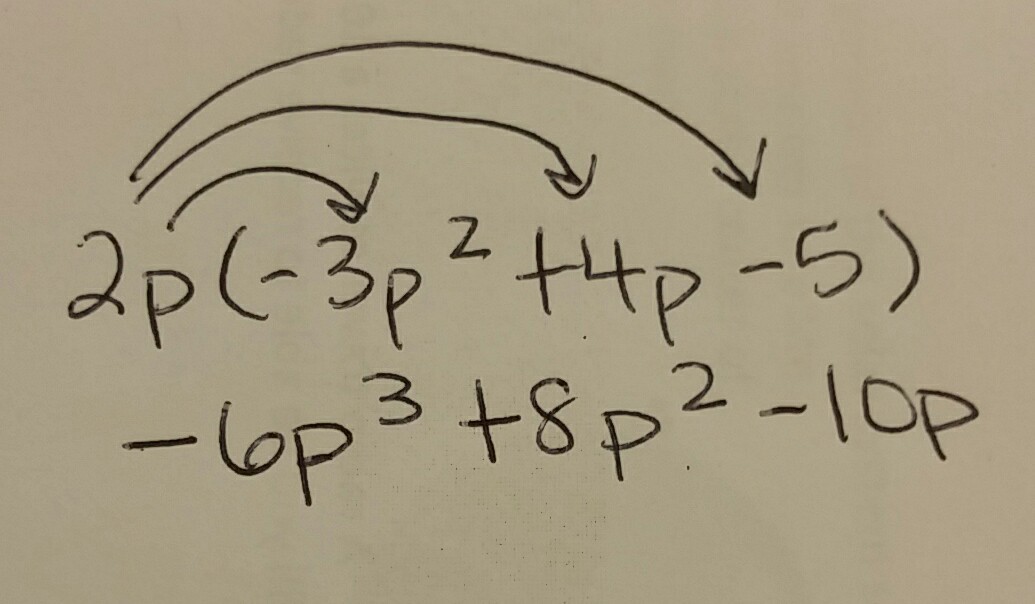 2p(-3p² +4p -5)
-6p³ +8p² -10p